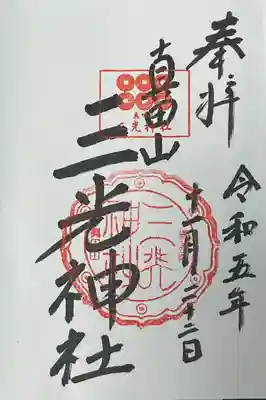 奉拝
令和五年
十一月二十二日
真田山
三光神社
三光神社